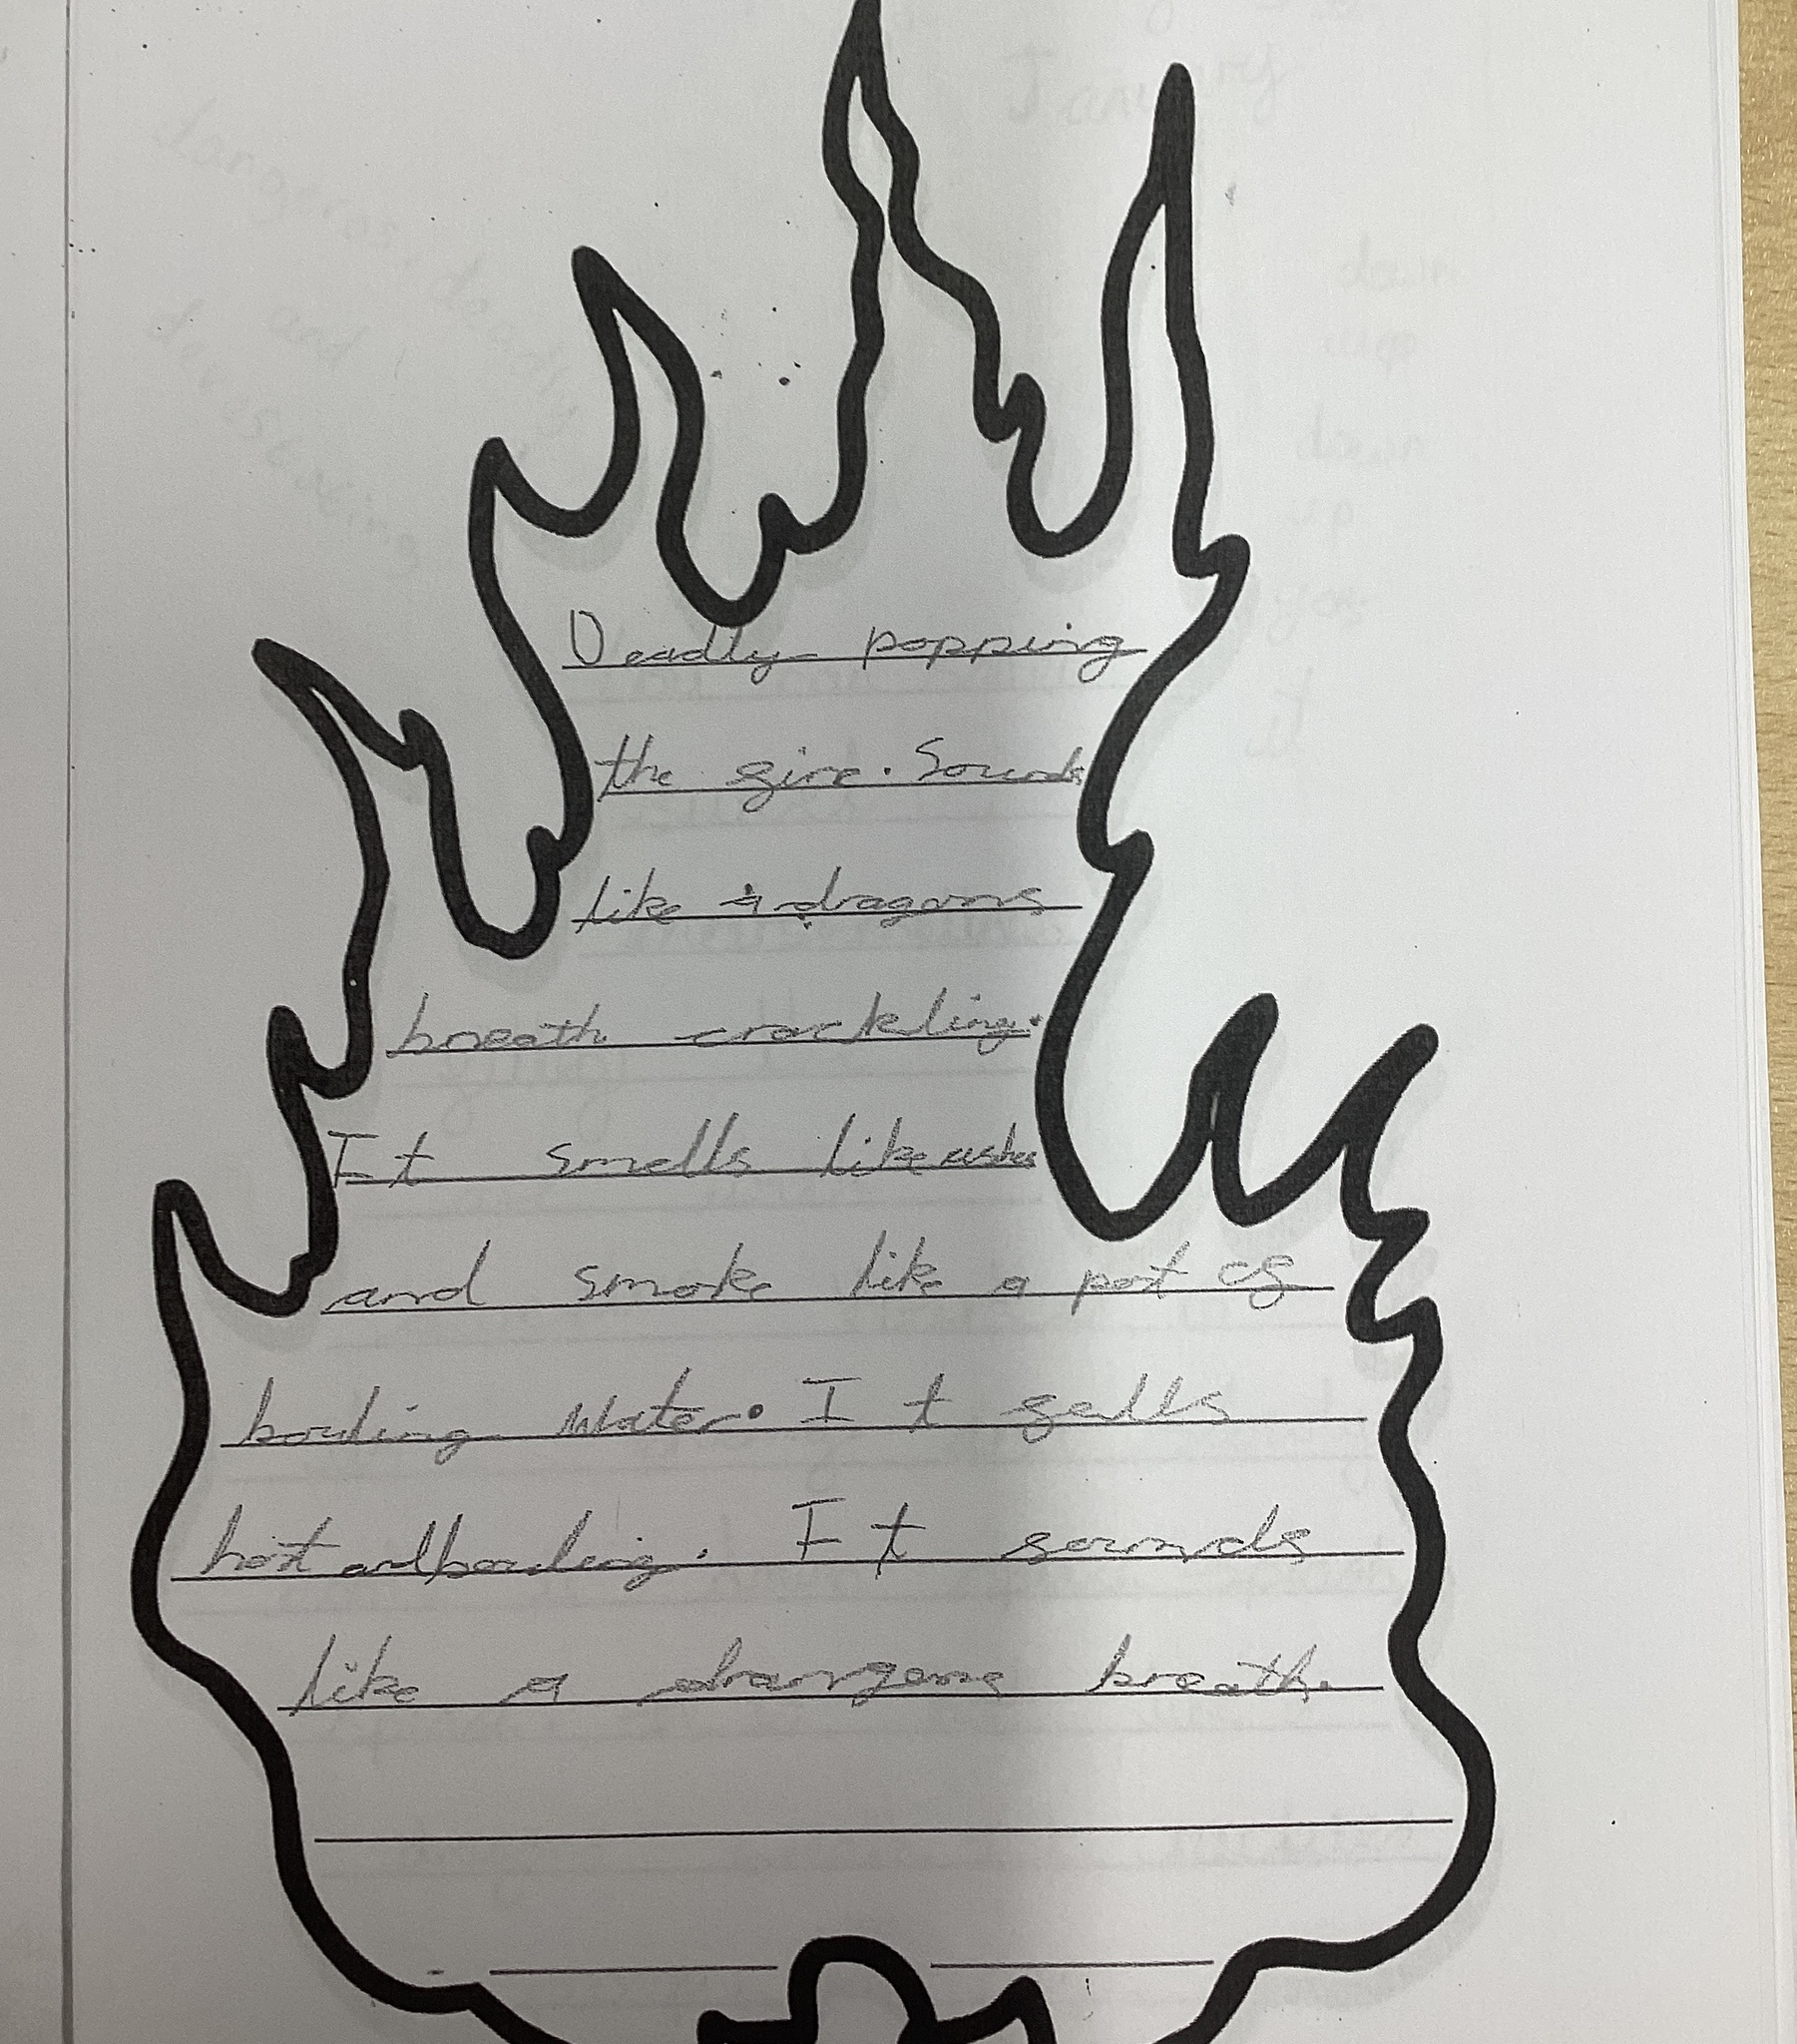 Deadly popping
the fire. Sounds
like a dragons
breath crackling.
It smells like ashes
and smoke like a pot of
bouling Water. It
hot and bouling. It sounds
like a drangons breath.